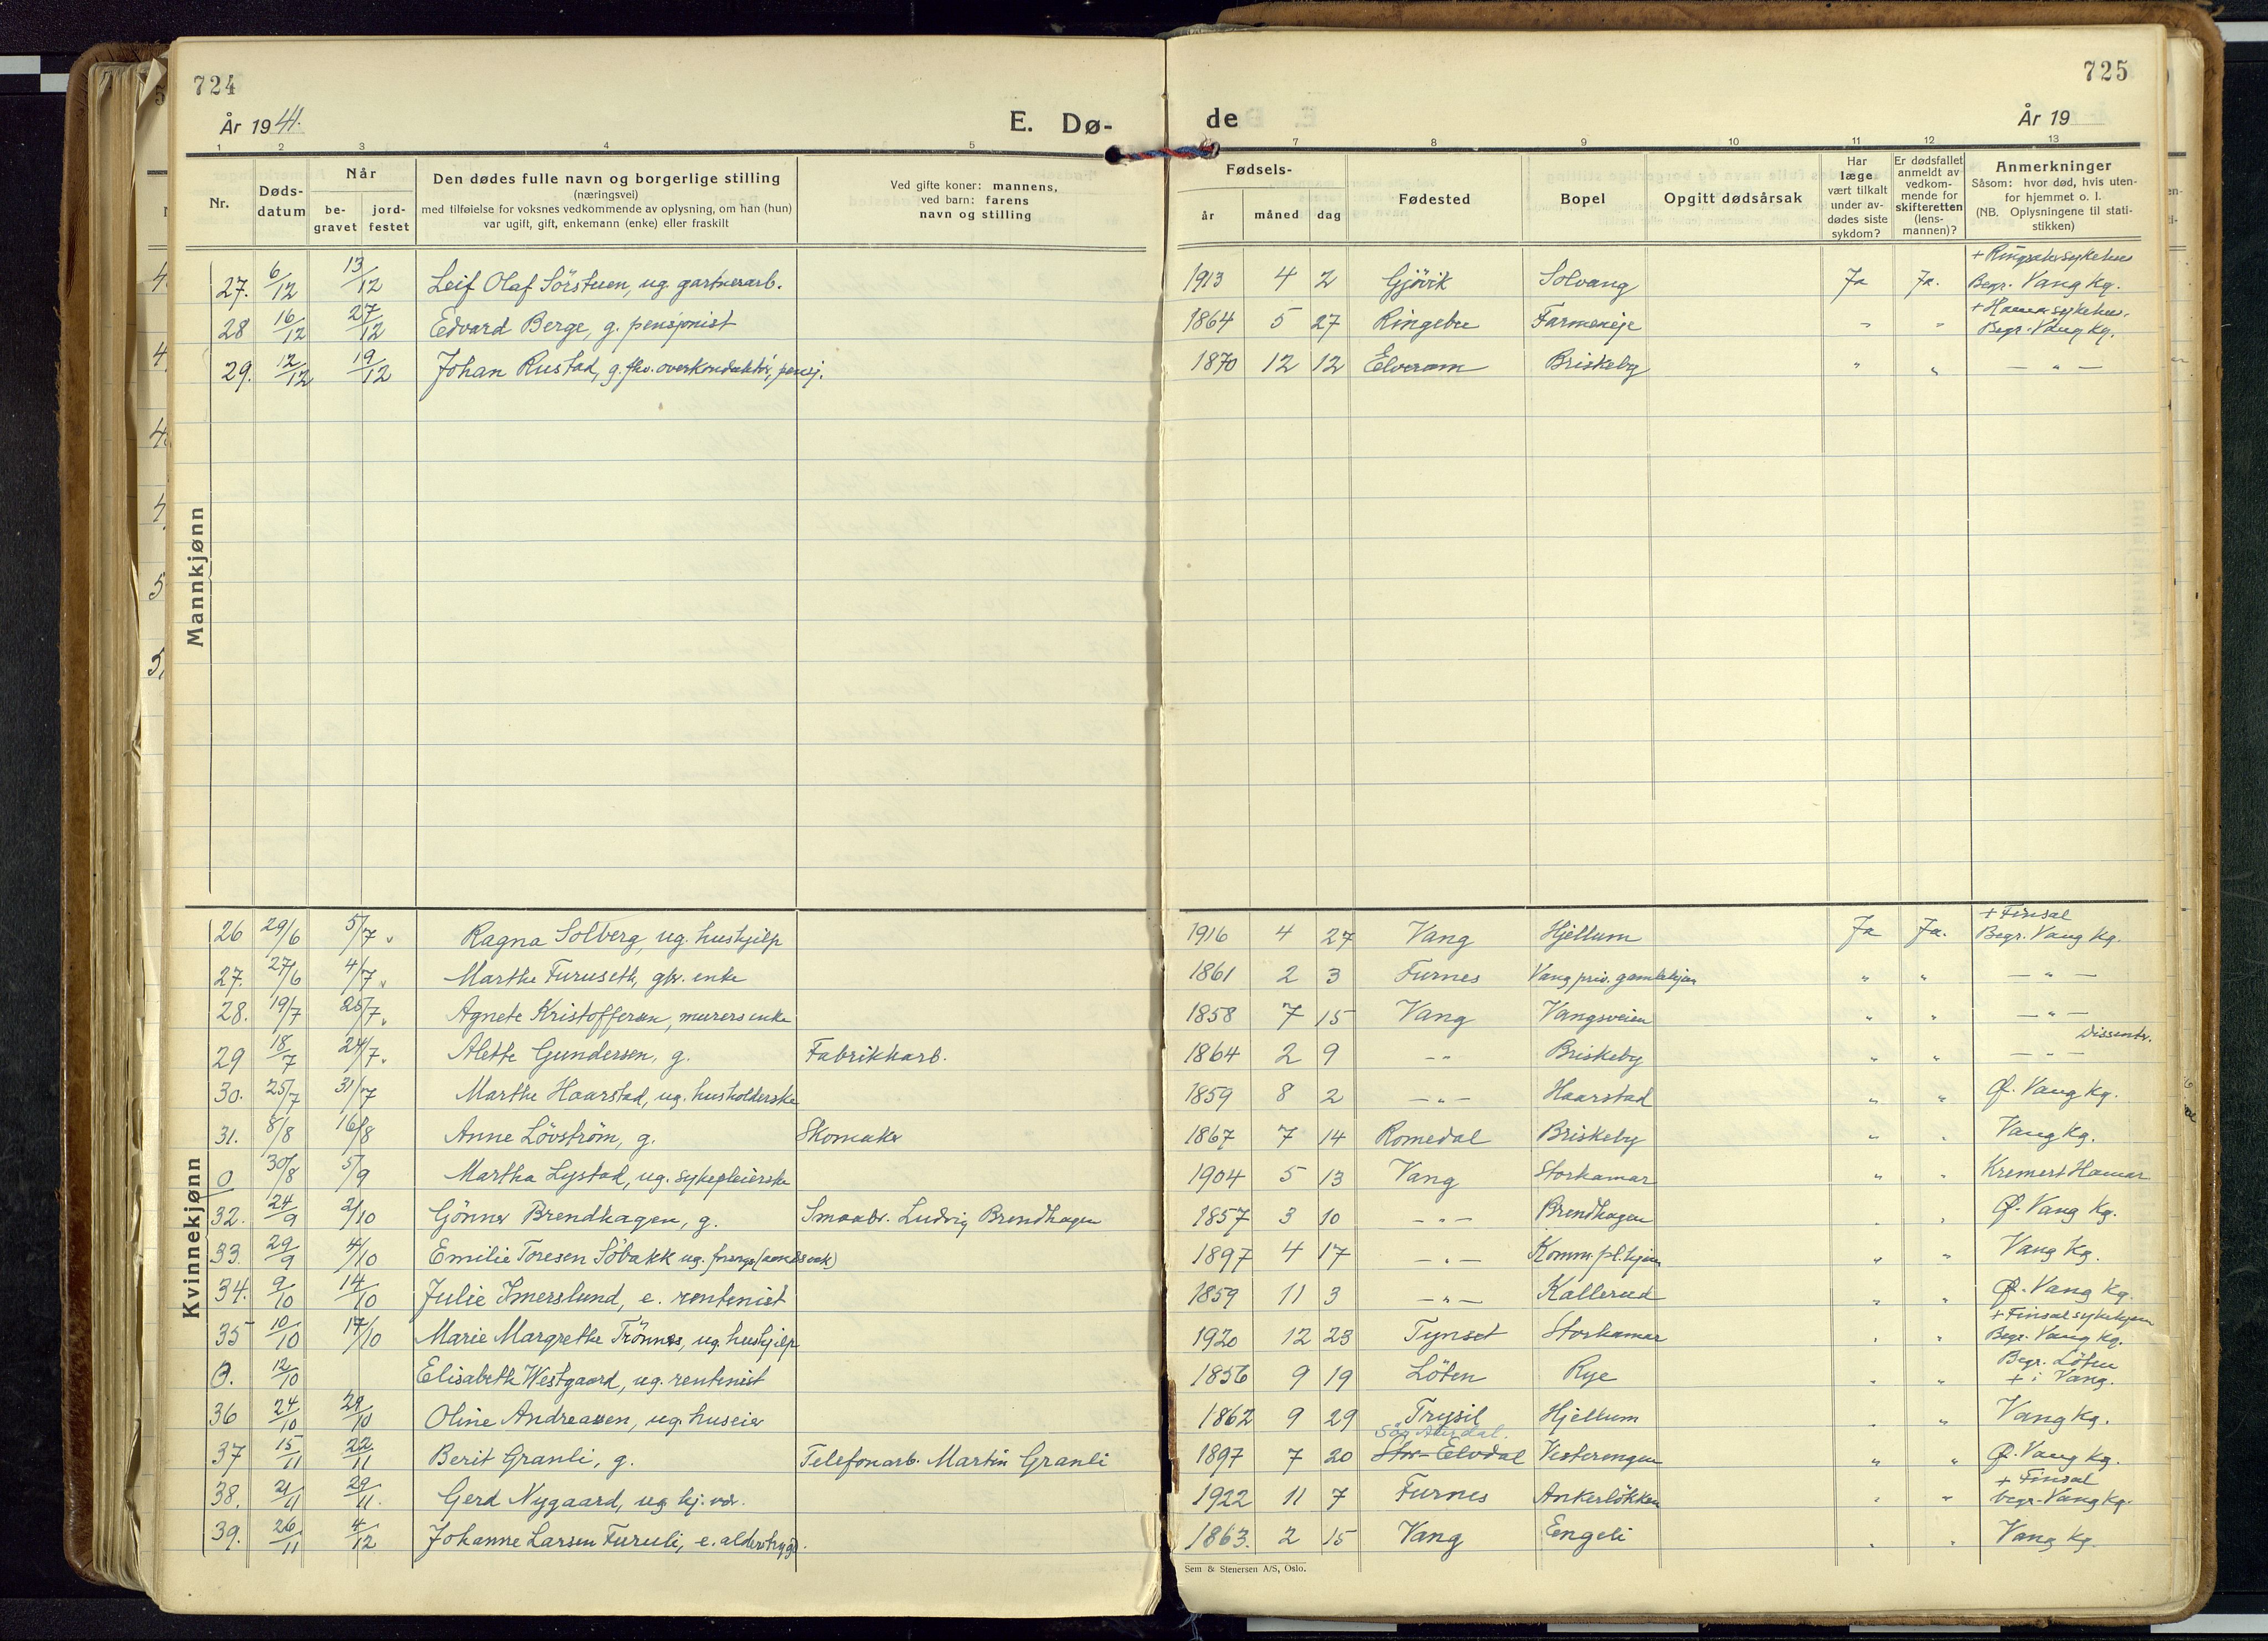 724
År 1941.
E. Dø-
de
725
År 19
1 2 3 4 5 7 8 9 10 11 12 13
Nr.
Døds-
datum
Når
be-
gravet
jord-
festet
Den dødes fulle navn og borgerlige stilling
(næringsvei)
med tilføielse for voksnes vedkommende av oplysning, om han (hun)
var ugift, gift, enkemann (enke) eller fraskilt
Ved gifte koner: mannens,
ved barn: farens
navn og stilling
Fødsels-
år måned dag
Fødested
Bopel
Opgitt dødsårsak
Har
læge
vært tilkalt
under av-
dødes siste
sykdom?
Er dødsfallet
anmeldt av
vedkom-
mende for
skifteretten
(lens-
mannen)?
Anmerkninger
Såsom: hvor død, hvis uten-
for hjemmet o. l.
(NB. Oplysningene til stati-
stikken)
Mannkjønn
27. 6/12 13/12 Leif Olaf Sörstuen, ug. gartnerarb. 1913 4 2 Gjövik Solvang Ja Ja. + Ringsaker sykehus
Begr. Vang kg.
28 16/12 27/12 Edvard Berge, g. pensjonist 1864 5 27 Ringebu Farmeneje " " + Hamar sykehus.
Begr. Vang kg.
29. 12/12 19/12 Johan Rustad, g. fhv. overkonduktör, pensj. 1870 12 12 Elverum Briskeby " " — " —
Kvinnekjønn
26 29/6 5/7 Ragna Solberg, ug. hushjelp 1916 4 27 Vang Hjellum Ja Ja. + Finsal
Begr. Vang kg.
27. 27/6 4/7 Marthe Furuseth, gbr. enke 1861 2 3 Furnes Vang priv. gamlehjem " " — " —
28. 19/7 25/7 Agnete Kristoffersen, murers enke 1858 7 15 Vang Vangsveien " " — " —
29 18/7 24/7 Alette Gundersen, g. Fabrikkarb. 1864 2 9 — " — Briskeby " " — " — Dissenter.
30. 25/7 31/7 Marthe Haarstad, ug. husholderske 1859 8 2 — " — Haarstad " " Ø. Vang kg.
31. 8/8 16/8 Anne Lövström, g. Skomaker 1867 7 14 Romedal Briskeby " " Vang kg.
0 30/8 5/9 Martha Lystad, ug. sykepleierske 1904 5 13 Vang Storhamar " " Kremert Hamar
32. 24/9 2/10 Gönner Brendhagen, g. Smaabr. Ludvig Brendhagen 1857 3 10 — " — Brendhagen " " Ø. Vang kg.
33. 29/9 4/10 Emilie Toresen Söbakk ug. forsorgs (aandssvak) 1897 4 17 — " — Komm. pl. hjem " " Vang kg.
34. 9/10 14/10 Julie Imerslund, e. rentenist 1859 11 3 — " — Kallerud " " Ø. Vang kg.
35 10/10 17/10 Marie Margrethe Trönnes, ug. hushjelp 1920 12 23 Tynset Storhamar " " + Finsal sykehjem
Begr. Vang kg.
0. 12/10 Elisabeth Westgaard, ug. rentenist 1856 9 19 Löten Rye " " Begr. Löten
+ i Vang.
36 24/10 29/10 Oline Andreassen, ug. huseier 1862 9 29 Trysil Hjellum " " Vang kg.
37 15/11 22/11 Berit Granli, g. Telefonarb. Martin Granli 1897 7 20 Stor-Elvdal Sör Aurdal. Vesterengen " " Ø. Vang kg.
38. 21/11 29/11. Gerd Nygaard, ug. hj. vær. 1922 11 7 Furnes Ankerlökken " " + Finsal
begr. Vang kg.
39. 26/11 4/12 Johanne Larsen Furuli, e. alderstrygd. 1863. 2 15 Vang Engeli " " Vang kg.
Sem & Stenersen A/S, Oslo.